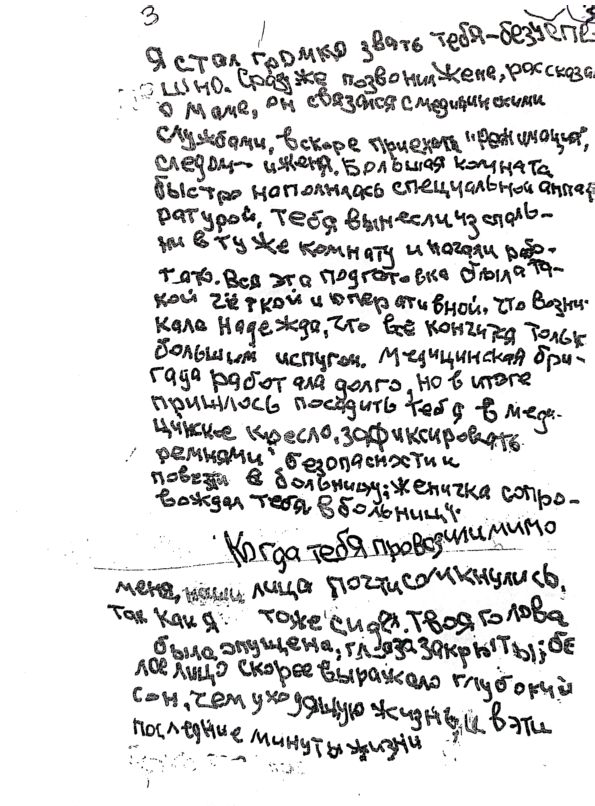 3
Я стал громко звать тебя-безуспе-
шно. Сразу же позвонил Жене, рассказал
о маме, он связался с медицинскими
службами, вскоре приехала "реанимация",
следом- и женя. Большая комната
быстро наполнилась специальной аппа-
ратурой, тебя вынесли из спаль-
ни в ту же комнату и начали рабо-
тать. Вся эта подготовка была та-
кой чёткой и оперативной, что возни-
кала надежда, что всё кончится только
большим испугом. Медицинская бри-
гада работала долго, но в итоге
пришлось посадить тебя в меди-
цинское кресло, зафиксировать
ремнями безопасности и
повезли в больницу; женичка сопро-
вождал тебя в больницу.
Когда тебя провозили мимо
меня, наши лица почти сомкнулись,
так как я тоже сидел. Твоя голова
была опущена, глаза закрыты; бе
лое лицо скорее выражало глубокий
сон, чем уходящую жизнь, и в эти
последние минуты жизни